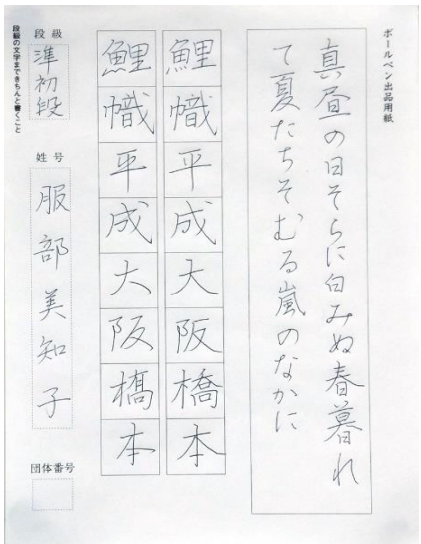 ボールペン出品用紙
真昼の日そらに白みぬ春暮れ
て夏たちそむる嵐のなかに
鯉幟平成大阪橋本
鯉幟平成大阪橋本
段級
準初段
段級の文字まできちんと書くこと
姓号
服部美知子
団体番号